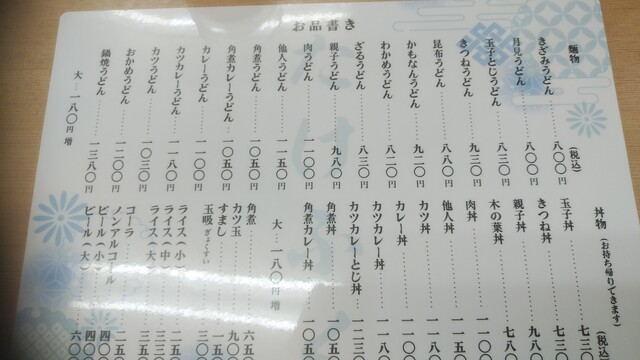 お品書き
麺物
(税込)
きざみうどん 八〇〇円
月見うどん 八〇〇円
玉子とじうどん 八三〇円
きつねうどん 九三〇円
昆布うどん 八八〇円
かもなんうどん 九二〇円
わかめうどん 八二〇円
ざるうどん 八三〇円
親子うどん 九八〇円
肉うどん 一一〇〇円
他人うどん 一一五〇円
角煮うどん 一〇〇〇円
角煮カレーうどん 一〇五〇円
カレーうどん 一一〇〇円
カツカレーうどん 一一八〇円
カツうどん 一〇三〇円
おかめうどん 一二〇〇円
鍋焼うどん 一三八〇円
大 一八〇円増
丼物 (お持ち帰りできます)
(税込)
玉子丼 七三〇
きつね丼 七三
親子丼 九八
木の葉丼 七八
肉丼 一一〇
他人丼
カツ丼
カレー丼
カツカレー丼
カツカレーとじ丼 一二三
角煮丼 一〇〇
角煮カレー丼 一〇五
大 一八〇円増
角煮 六五〇
カツ玉 九〇
すまし 一五
玉吸 ぎょくすい 三〇
ライス(小) 二五
ライス(中) 三三
ライス(大) 三五
コーラ 二五
ノンアルコール 四〇
ビール(小) 四〇〇
ビール(大) 六〇〇